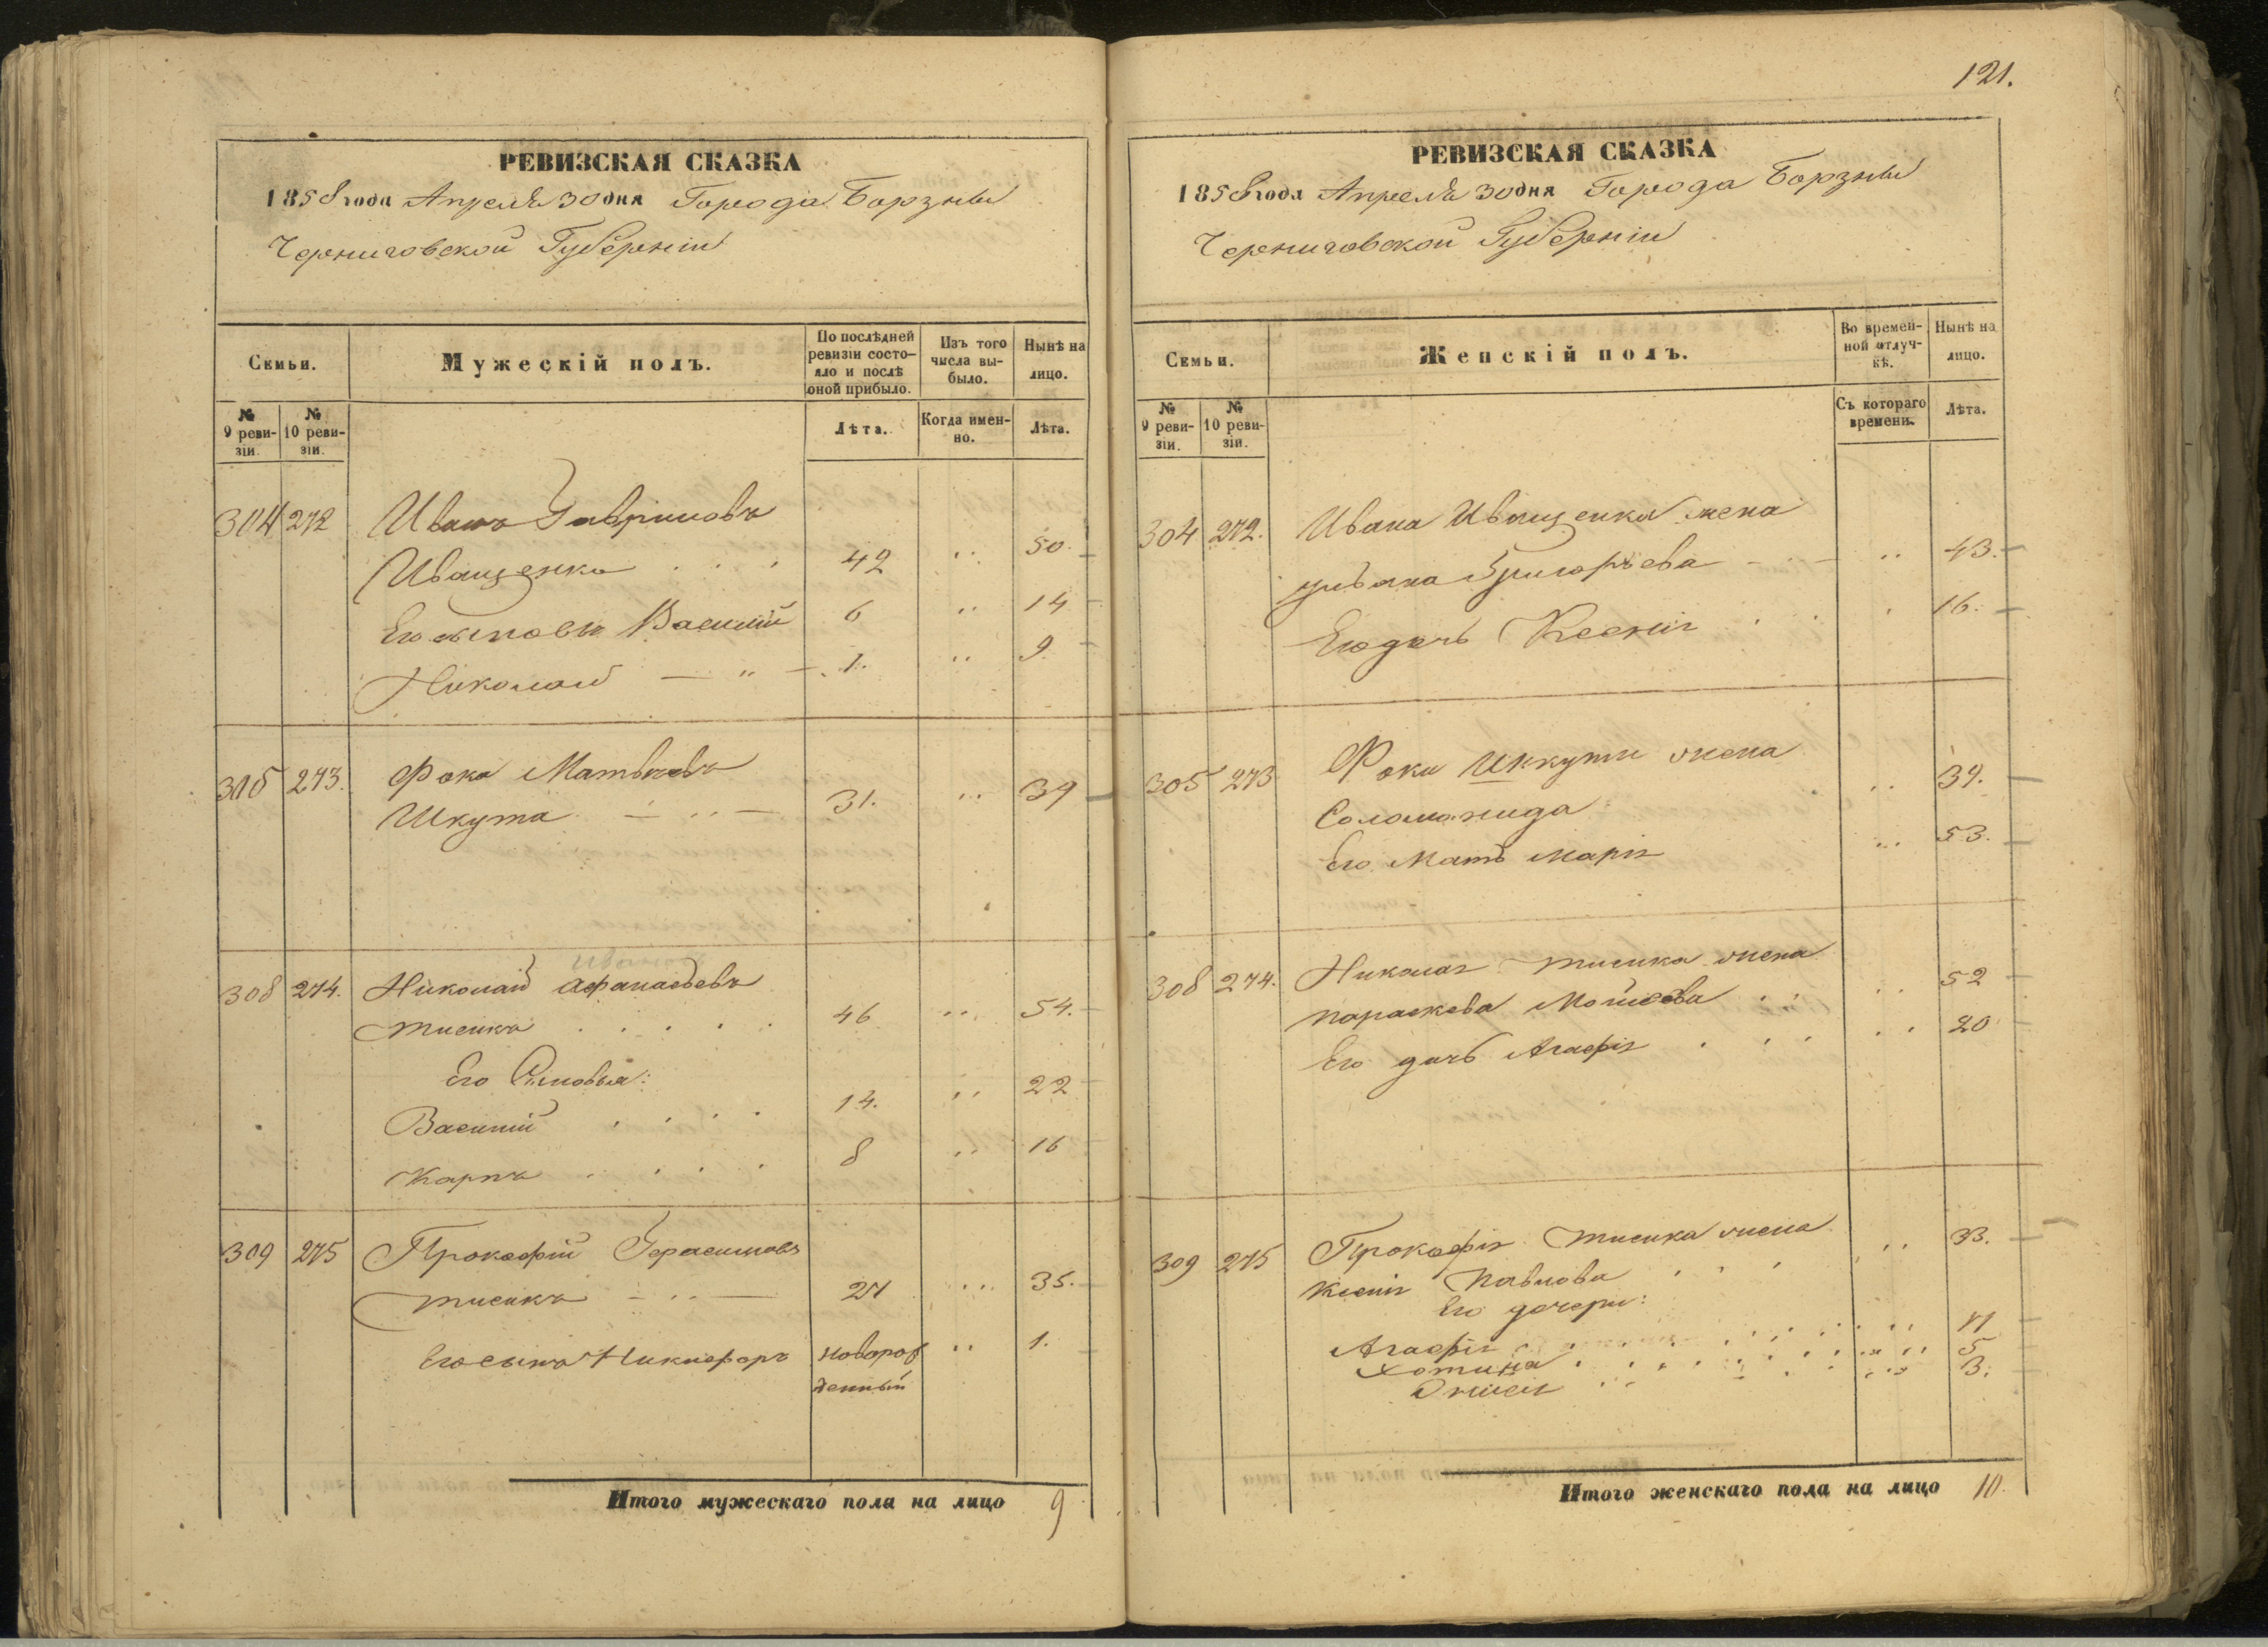 РЕВИЗСКАЯ СКАЗКА
1858 года Апреля 30 дня Города Борзны
Черниговской Губерніи
Семьи.
Мужескій полъ.
По послѣдней ревизіи состояло и послѣ оной прибыло.
Изъ того числа выбыло.
Нынѣ на лицо.
№ 9 ревизіи.
№ 10 ревизіи.
Лѣта.
Когда именно.
Лѣта.
304 272 Иванъ Гавриловъ
Иващенко 42 50
Его сыновья Василий 6 14
Николай 1. 9.
305 273. Фока Матвѣевъ
Шкута 31. 39
308 274. Николай Афанасьевъ
Тисика 46 54.
Его Сыновья:
Василий 14. 22
Карпъ 8 16
309 275 Прокофій Герасимовъ
Тисика 27 35.
Его сынъ Никифоръ новорожденный 1.
Итого мужескаго пола на лицо 9
121.
РЕВИЗСКАЯ СКАЗКА
1858 года Апреля 30 дня Города Борзны
Черниговской Губерніи
Семьи.
Женскій полъ.
Во временной отлучкѣ.
Нынѣ на лицо.
№ 9 ревизіи.
№ 10 ревизіи.
Съ котораго времени.
Лѣта.
304 272. Ивана Иващенка жена
Ульяна Григорьева 43.
Его дочь Ксенія 16.
305 273 Фоки Шкуты жена
Соломонида 39.
Его Мать Марія 53.
308 274. Николая Тисика жена
Параскева Мойсеева 52
Его дочь Агафія 20
309 275 Прокофія Тисика жена
Ксенія Павлова 33.
Его дочери:
Агафія 11
Хотина 5
3.
Итого женскаго пола на лицо 10.